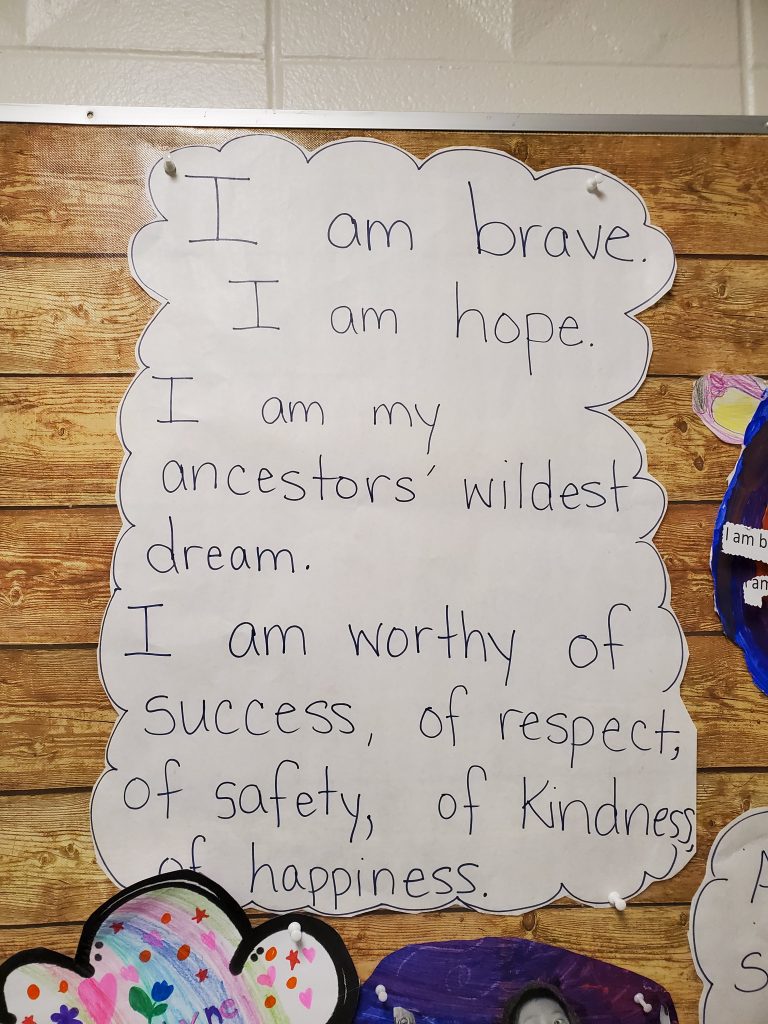 I am brave.
I am hope.
I am my
ancestors' wildest
dream.
I am worthy of
success, of respect,
of safety, of kindness,
of happiness.
I am b
am
yne
A
S